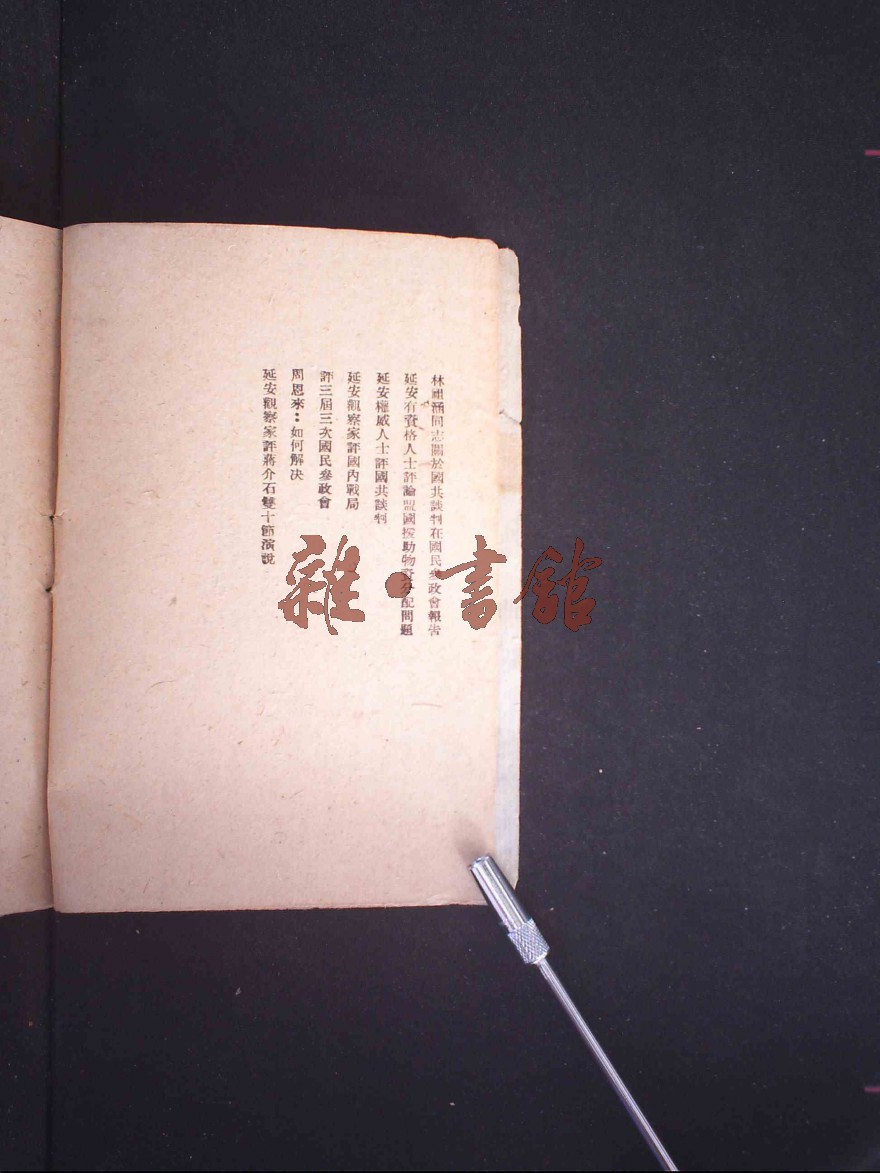 林祖涵同志關於國共談判在國民參政會報告
延安有資格人士評論盟國援助物資分配問題
延安權威人士評國共談判
延安觀察家評國內戰局
評三屆三次國民參政會
周恩來：如何解決
延安觀察家評蔣介石雙十節演說
雜·書館